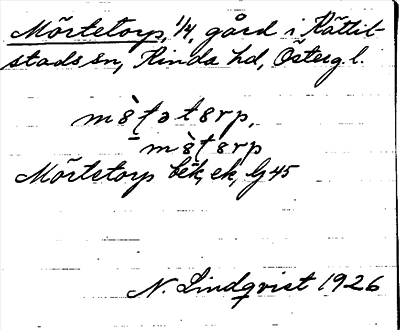 Mörtetorp, 1/4, gård i Kättil-
stads sn, Kinda hd, Österg. l.
Mörtetorp bek, ek, Ij 45
N. Lindqvist 1926